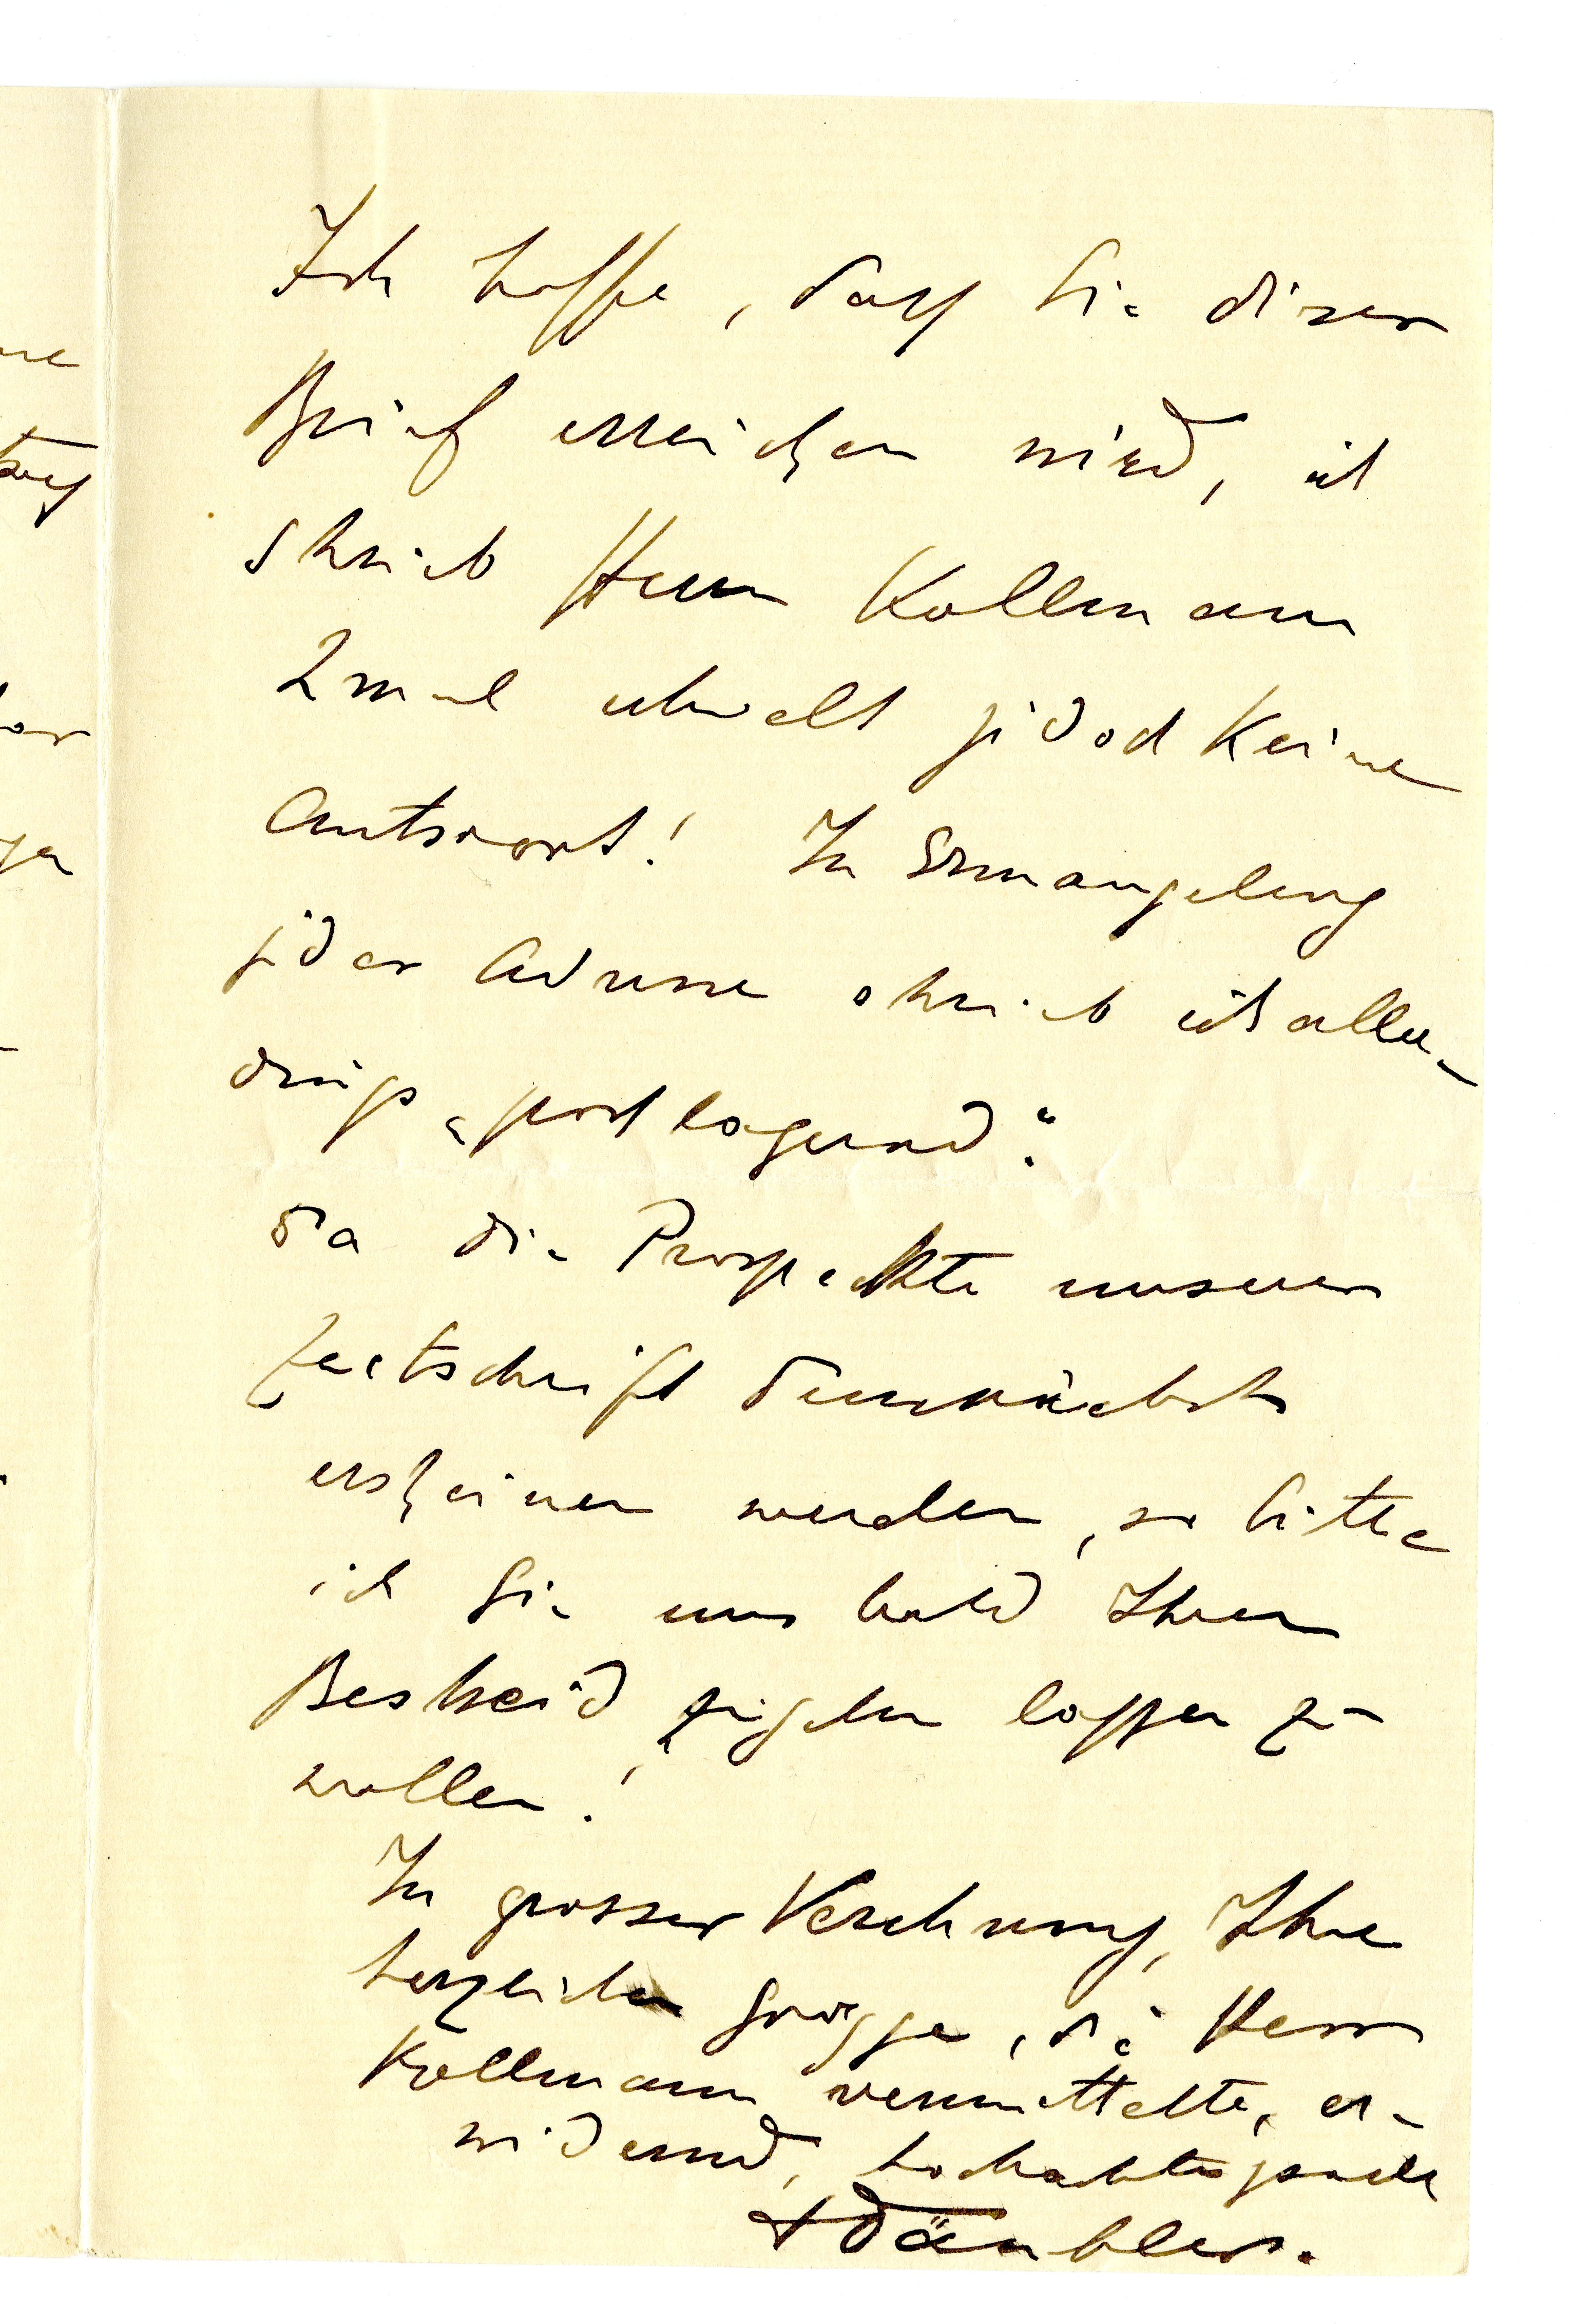 Ich hoffe, dass Sie dieser
Brief erreichen wird, ich
schrieb Herrn Kollmann
2 mal erhielt jedoch keine
Antwort! In Ermangelung
jeder Adresse schrieb ich aller-
dings „postlagernd".
Da die Prospekte unserer
Zeitschrift demnächst
erscheinen werden, so bitte
ich Sie uns bald Ihren
Bescheid zugehen lassen zu
wollen!
In grosser Verehrung, Ihre
herzlichen Grüsse, die Herr
Kollmann vermittelte, er-
widernd, hochachtungsvoll
Däubler.